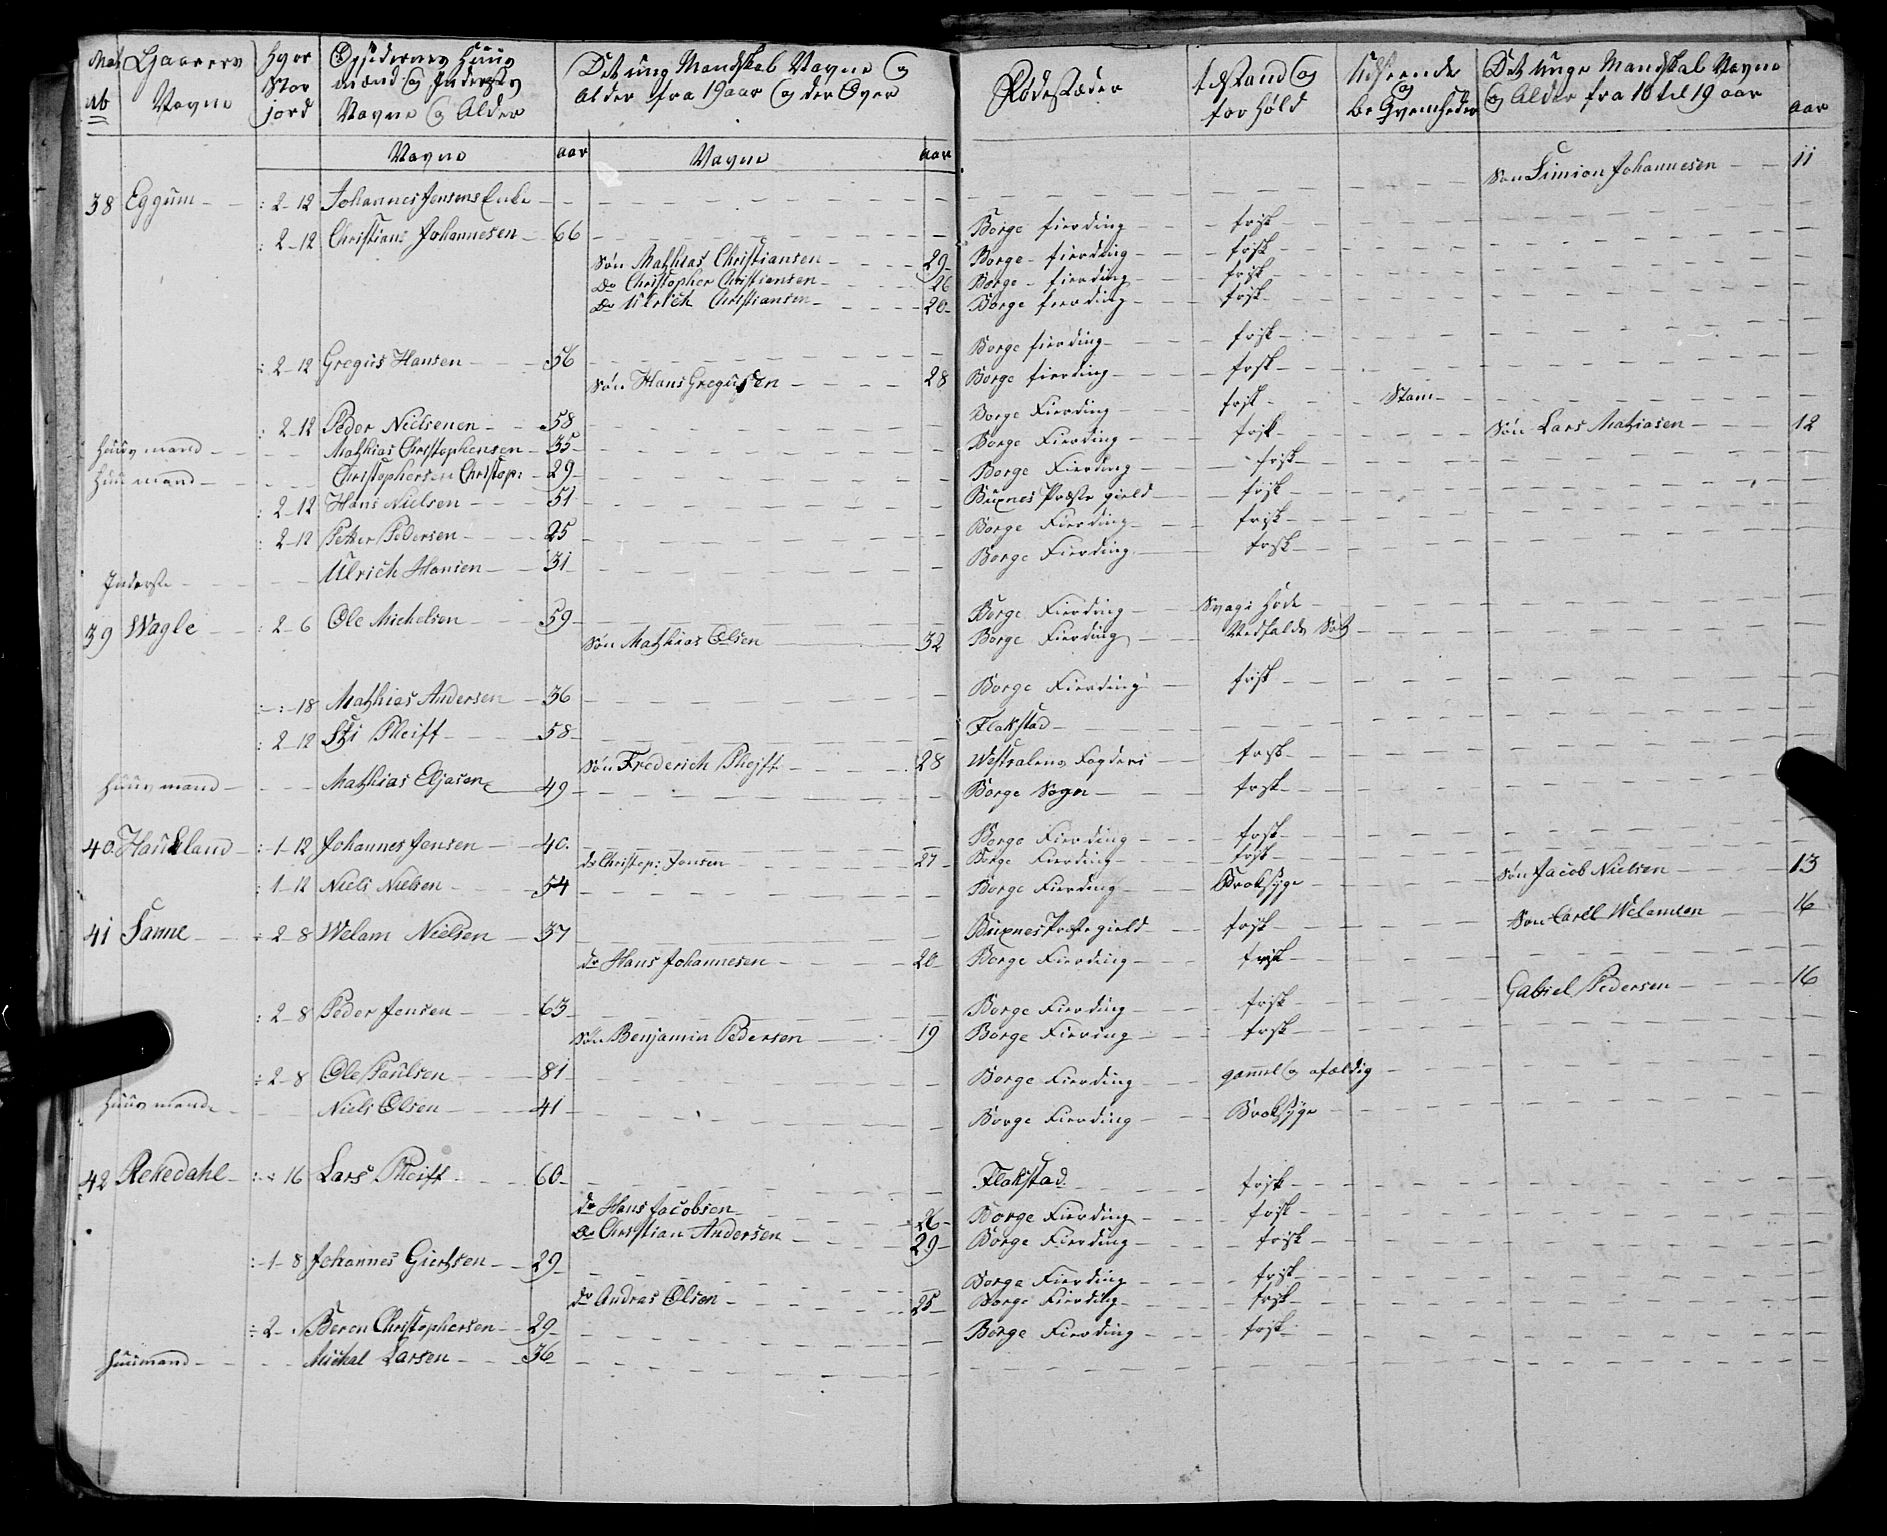 Mat No | Gaarens Navne | Hvor Stor jord | Opsidernes Huus mænd og Inderstes Navne og Alder | Det ung Mandskab Navne og Alder fra 19 aar og der Over | Fødestæder | tilstand og forhold | Udseende og beqvemheder | Det unge Mandskab Navne og Alder fra 10 til 19 aar | aar
Navne | aar | Navne | aar
Søn Simion Johannesen 11
38 Eggum : 2-12 Johannes Jensens Enke
: 2-12 Christian Johannesen 66 Borge fierding frisk
Søn Mathias Christiansen 29 Borge fierding frisk
Do Christopher Christiansen 26 Borge fierding frisk
Do Ulrich Christiansen 20 Borge fierding frisk
: 2-12 Gregus Hansen 56 Borge fierding frisk
Søn Hans Gregusen 28 Borge fierding frisk
: 2-12 Peder Nielsenen 58 Borge Fierding frisk Stam
Huusmand Mathias Christophensen 35 Borge Fierding frisk Søn Lars Mathiasen 12
Huusmand Christophersen Christop: 29 Borge Fierding frisk
: 2-12 Hans Nielsen 51 Buxnes Præste gield frisk
: 2-12 Petter Pedersen 25 Borge Fierding frisk
Inderste Ulrich Hansen 31 Borge Fierding frisk
39 Wagle : 2-6 Ole Michelsen 59 Borge Fierding Svag i Hode
Søn Mathias Olsen 32 Borge Fierding Nedfalds Sot
: - : -18 Mathias Andersen 36 Borge Fierding frisk
: 2-12 Pleift 58 Flakstad
Søn Frederich Plejft 28 Westralens Fogderi frisk
Huusmand Mathias Eljasen 49 Borge Sogn frisk
40 Haukland : 1-12 Johannes Jensen 40 Borge Fierding frisk
dr Christop: Jensen 27 Borge Fierding frisk
: 1-12 Niels Nielsen 54 Borge Fierding Broksyge Søn Jacob Nielsen 13
41 Sanne : 2-8 Welam Nielsen 37 Buxnes Præste gield frisk Søn Carel Welamsen 16
dr Hans Johannesen 20 Borge Fierding frisk
: 2-8 Peder Jensen 63 Borge Fierding frisk Gabriel Pedersen 16
Søn Benjamin Pedersen 19 Borge Fierding frisk
: 2-8 Ole Paulsen 81 Borge Fierding gammel og afældig
Huusmand Niels Olsen 41 Borge Fierding Broksyge
42 Rekedahl : - : 16 Lars Pleift 60 Flakstad frisk
dr Hans Jacobsen 26 Borge Fierding frisk
dr Christian Andersen 29 Borge Fierding frisk
: 1-8 Johannes Giertsen 29 Borge Fierding frisk
dr Andras Olsen 25 Borge Fierding frisk
: 2 - Beren Christophersen 29 Borge Fierding frisk
Huusmand Michal Larsen 36